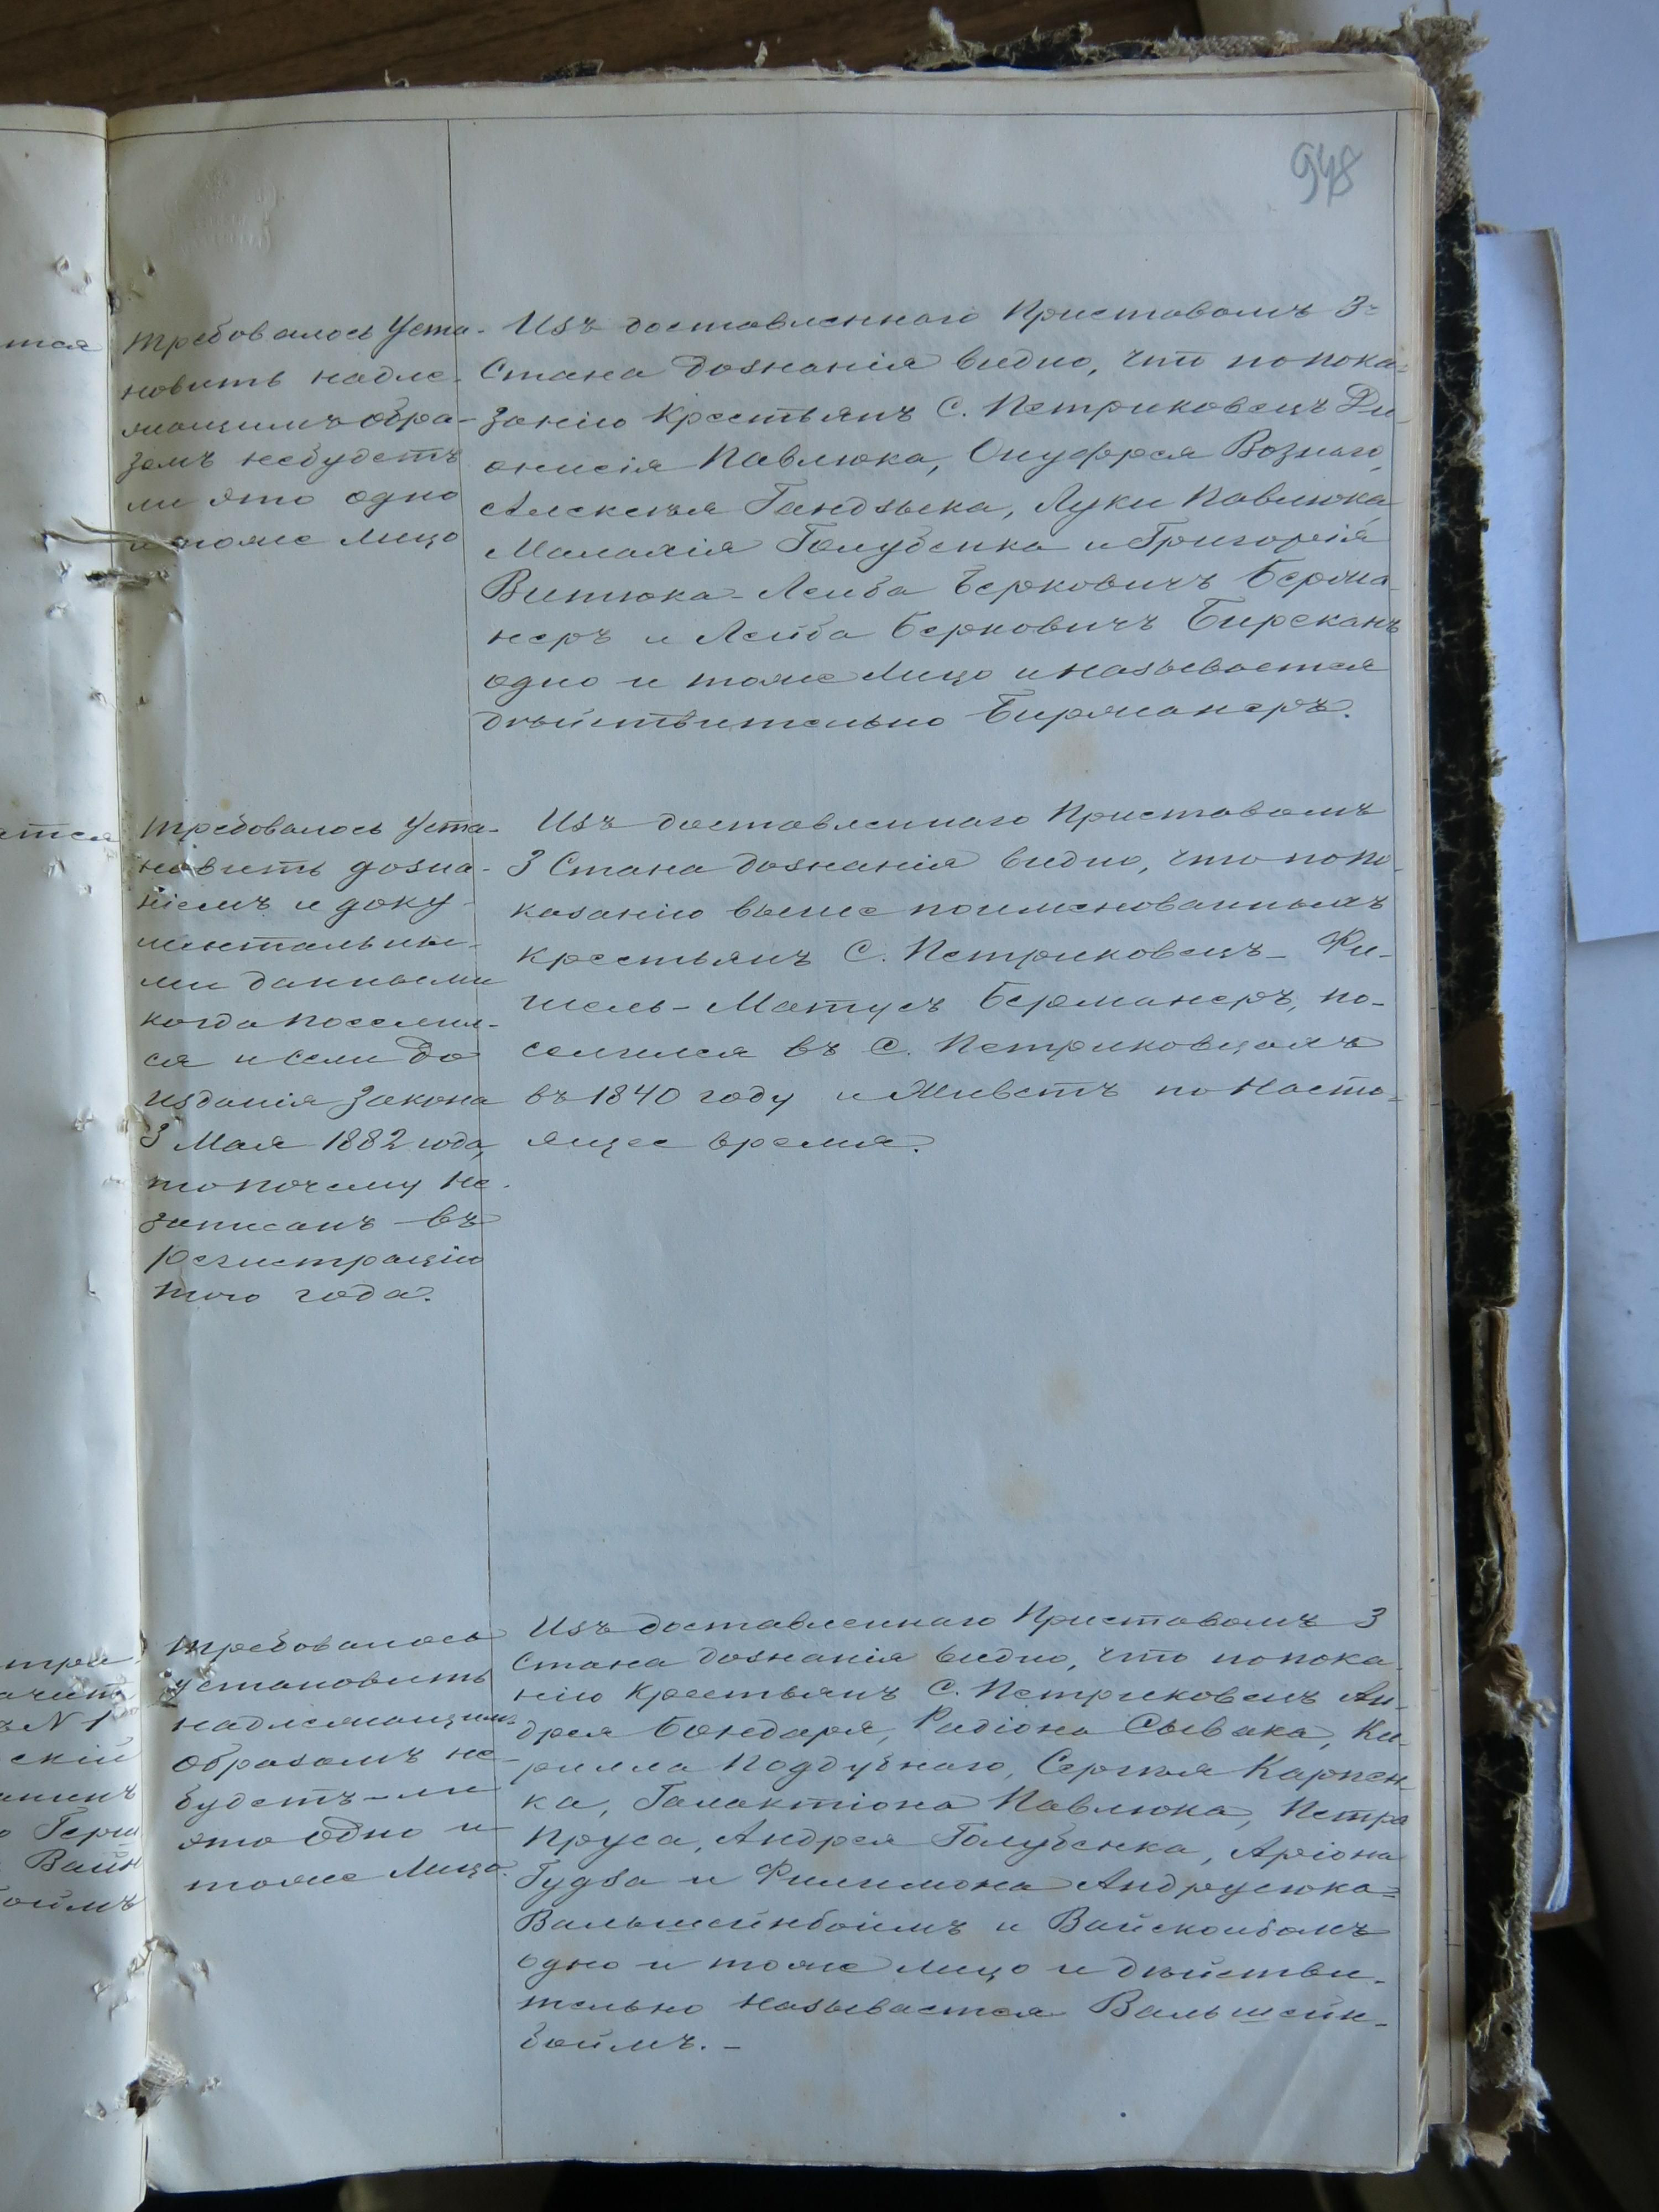 948
тся
Требовалось Уста-
новить надле-
жащимъ обра-
зомъ небудетъ
ли это одно
и тоже лицо
Изъ доставленнаго Приставомъ 3=
Стана дознанія видно, что по пока=
занію Крестьянъ С. Петриковецъ Ди-
онисія Павлюка, Онуфрея Возного,
Алексея Гандзыка, Луки Павлюка,
Малахія Голубенка и Григорія
Витюка - Лейба Берковичъ Берма-
неръ и Лейба Берковичъ Биреканъ
одно и тоже лицо и называется
дѣйствительно Бирманеръ.
ется
Требовалось Уста-
новить дозна-
ніемъ и доку-
ментальны-
ми данными
когда поселил-
ся и если до
изданія Закона
3 Мая 1882 года,
то почему не-
записанъ въ
Регистрацію
того года.
Изъ доставленнаго Приставомъ
3 Стана дознанія видно, что по по-
казанію выше поименованныхъ
Крестьянъ С. Петриковецъ - Фи-
шель - Матусъ Берманеръ, по-
селился въ С. Петриковцахъ
въ 1840 году и Живетъ по Насто-
ящее время.
три
ъ N 1
скій
о Герш
Вайн
боймъ
Требовалось
установить
надлежащимъ
образомъ не-
будетъ-ли
это одно и
тоже Лицо.
Изъ доставленнаго Приставомъ 3
Стана дознанія видно, что по пока-
нію Крестьянъ С. Петриковецъ Ан-
дрея Бондаря, Радіона Сывака, Ки-
рилла Поддубнаго, Сергѣя Карпен-
ка, Галактіона Павлюка, Петра
Пруса, Андрея Голубенка, Аріона
Гудза и Филимона Андрусюка=
Вальшейнбоймъ и Вайскоибамъ
одно и тоже лицо и дѣйстви-
тельно называется Вальшейн-
боймъ. -